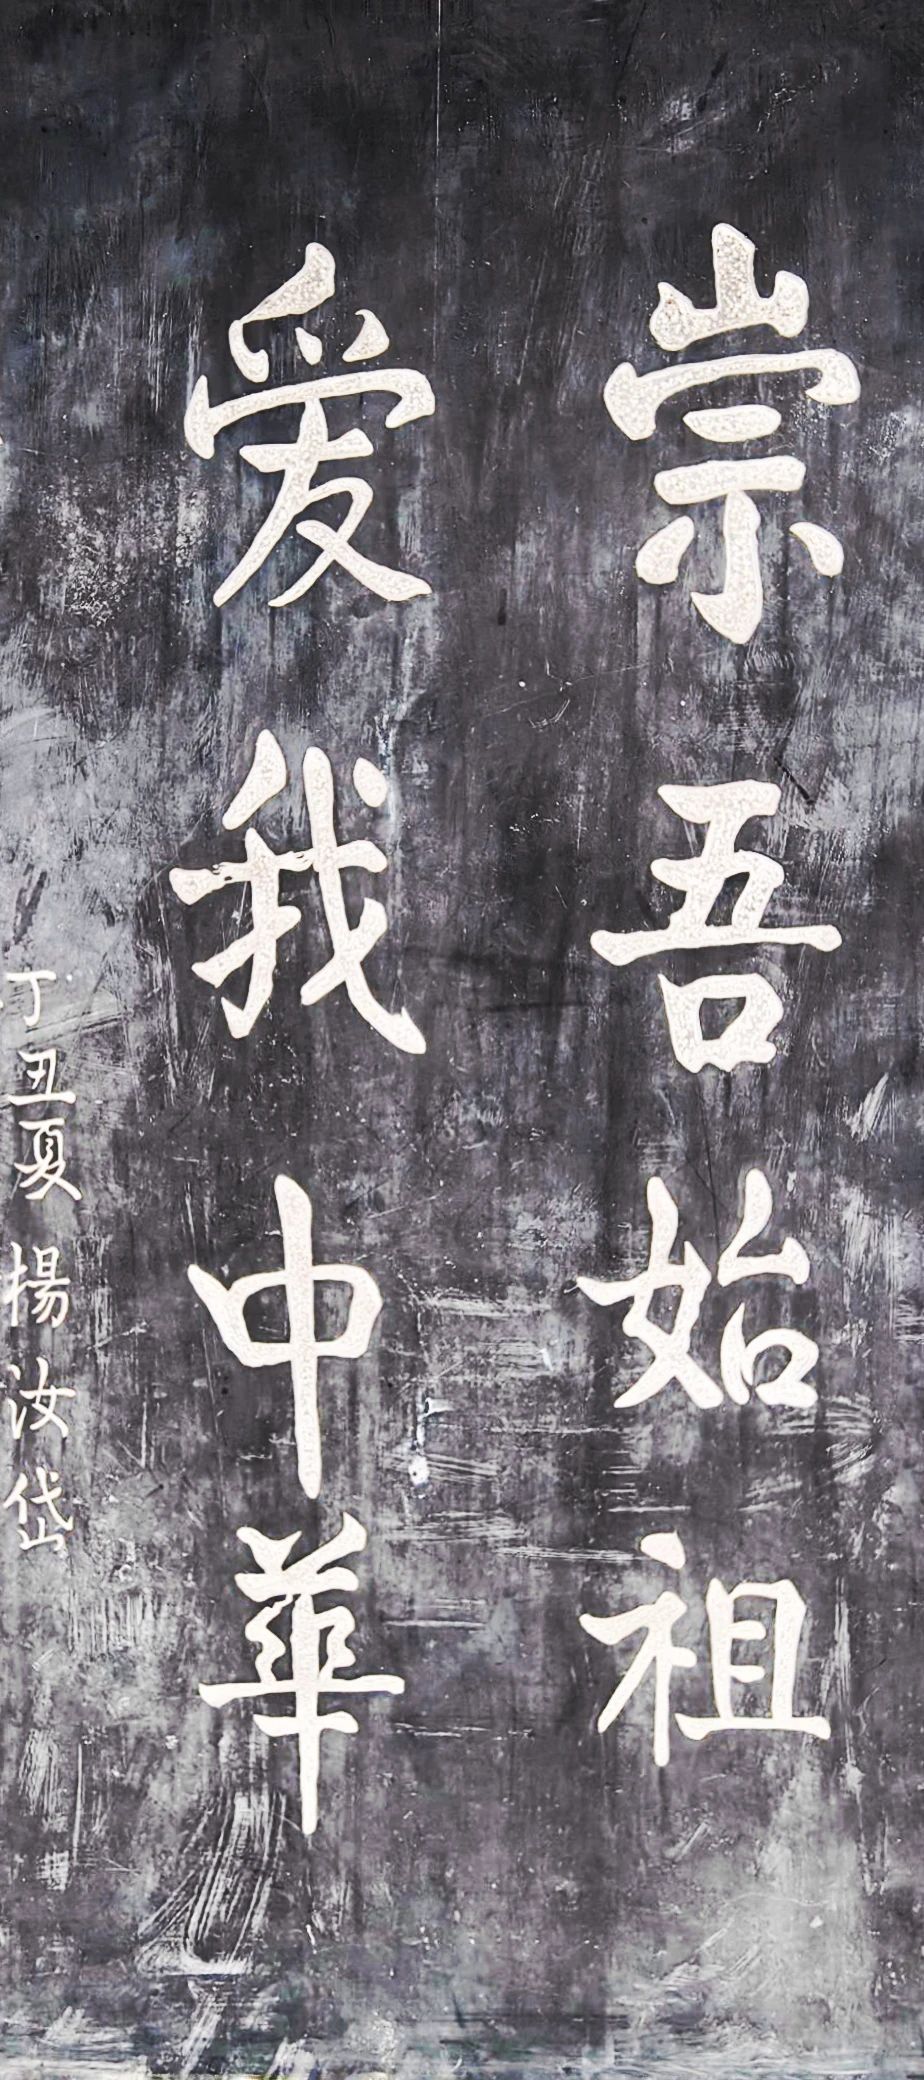 崇吾始祖
爱我中華
丁丑夏 揚汝岱